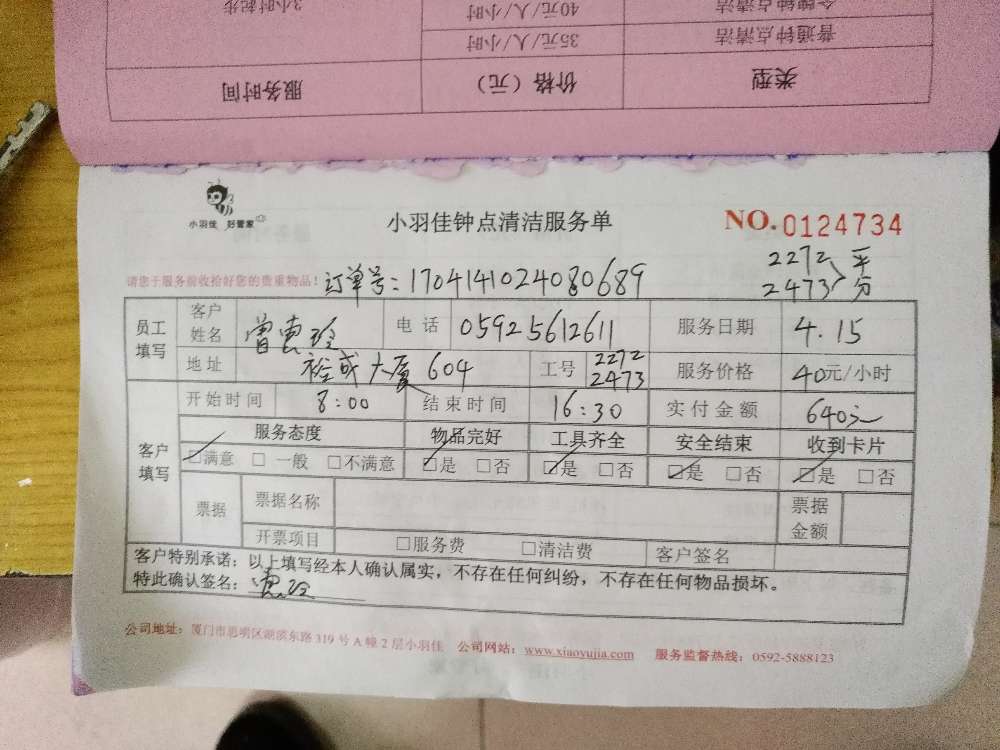 3小时起步
40元/人/小时
金牌钟点清洁
35元/人/小时
普通钟点清洁
服务时间
价格（元）
类型
小羽佳 好管家
小羽佳钟点清洁服务单
NO.0124734
请您于服务前收拾好您的贵重物品！
订单号：1704141024080689
2272 平
2473 分
员工填写
客户姓名 曾惠玲 电话 05925612611 服务日期 4.15
地址 裕成大厦604 工号 2272 2473 服务价格 40元/小时
客户填写
开始时间 8:00 结束时间 16:30 实付金额 640元
服务态度 物品完好 工具齐全 安全结束 收到卡片
☑满意 □一般 □不满意 ☑是 □否 ☑是 □否 ☑是 □否 ☑是 □否
票据 票据名称 票据金额
开票项目 □服务费 □清洁费 客户签名
客户特别承诺：以上填写经本人确认属实，不存在任何纠纷，不存在任何物品损坏。
特此确认签名：惠玲
公司地址：厦门市思明区湖滨东路319号A幢2层小羽佳 公司网站：www.xiaoyujia.com 服务监督热线：0592-5888123